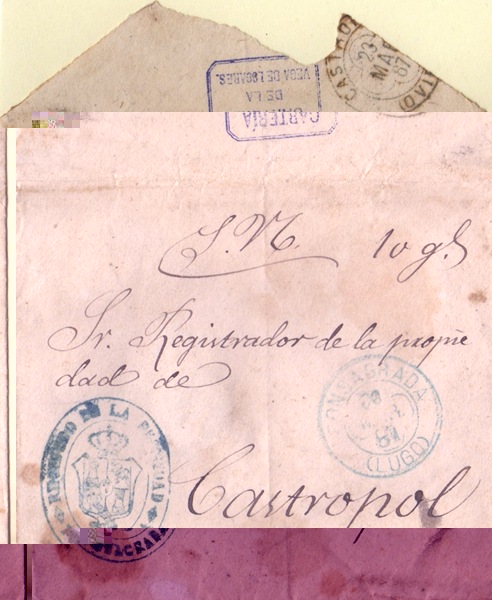 CARTERÍA
DE LA
VEGA DE LOGARES.
23
MAR
87
S.N. 10 gs
Sr. Registrador de la propie
dad de
FONSAGRADA
20
87
(LUGO)
REGISTRO DE LA PROPIEDAD
Castropol